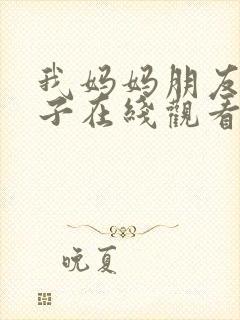 我妈妈朋友
子在线觀看
晚夏